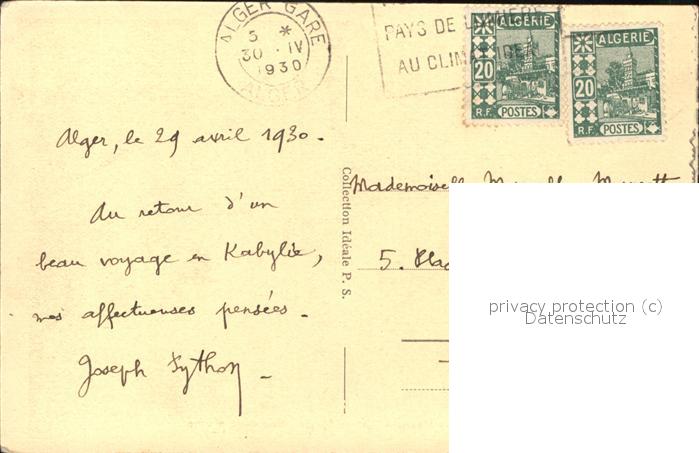 ALGER GARE
5 *
30 · IV
1930
ALGER
PAYS DE LUMIERE
AU CLIM
ALGÉRIE
20
R.F. POSTES
ALGÉRIE
20
R.F. POSTES
Alger, le 29 avril 1930.
Au retour d'un
beau voyage en Kabylie,
mes affectueuses pensées.
Joseph Sython
Collection Idéale P. S.
Mademoisel
5.
privacy protection (c)
Datenschutz